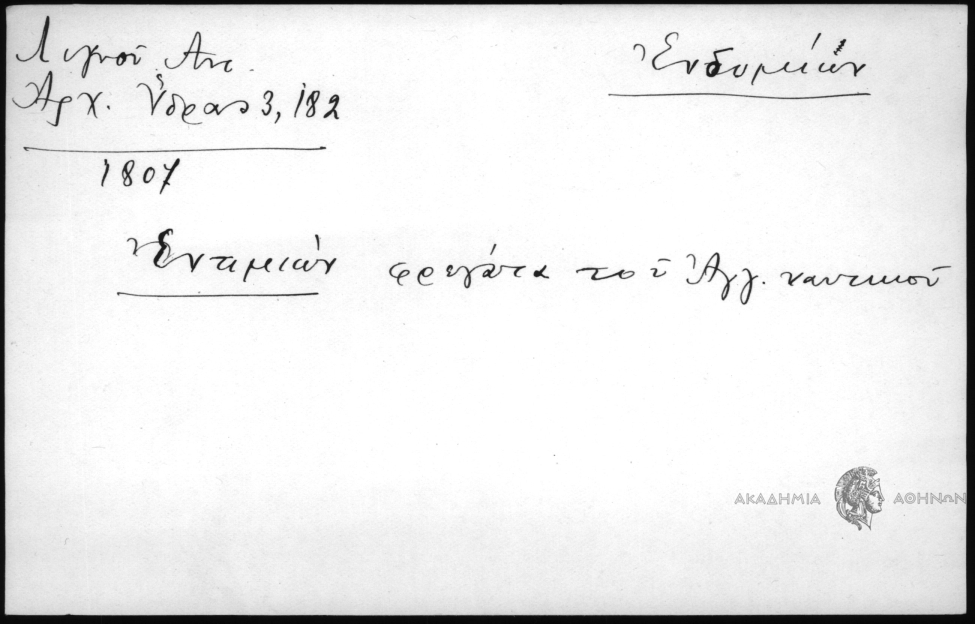 Λιγνοῦ Αντ.
Ἀρχ. Ὕδρας 3, 182
1807
Ἐνδυμίων
Ἐντιμιὼν φρεγάτα τοῦ Ἀγγ. ναυτικοῦ
ΑΚΑΔΗΜΙΑ ΑΘΗΝΩΝ